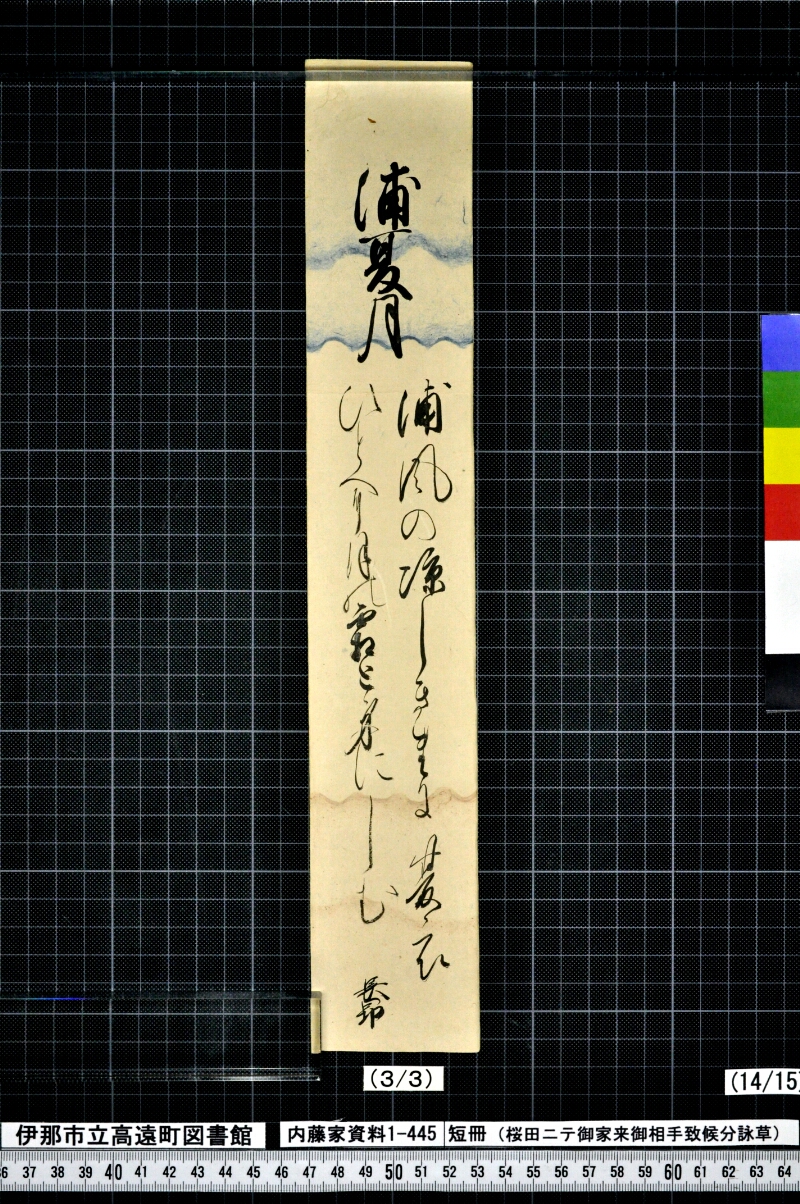 浦夏月
浦風の涼しきまゝに夏衣
ひとへに月の霜と身にしむ
(3/3)
(14/15)
伊那市立高遠町図書館 内藤家資料1-445 短冊（桜田ニテ御家来御相手致候分詠草）
37 38 39 40 41 42 43 44 45 46 47 48 49 50 51 52 53 54 55 56 57 58 59 60 61 62 63 64